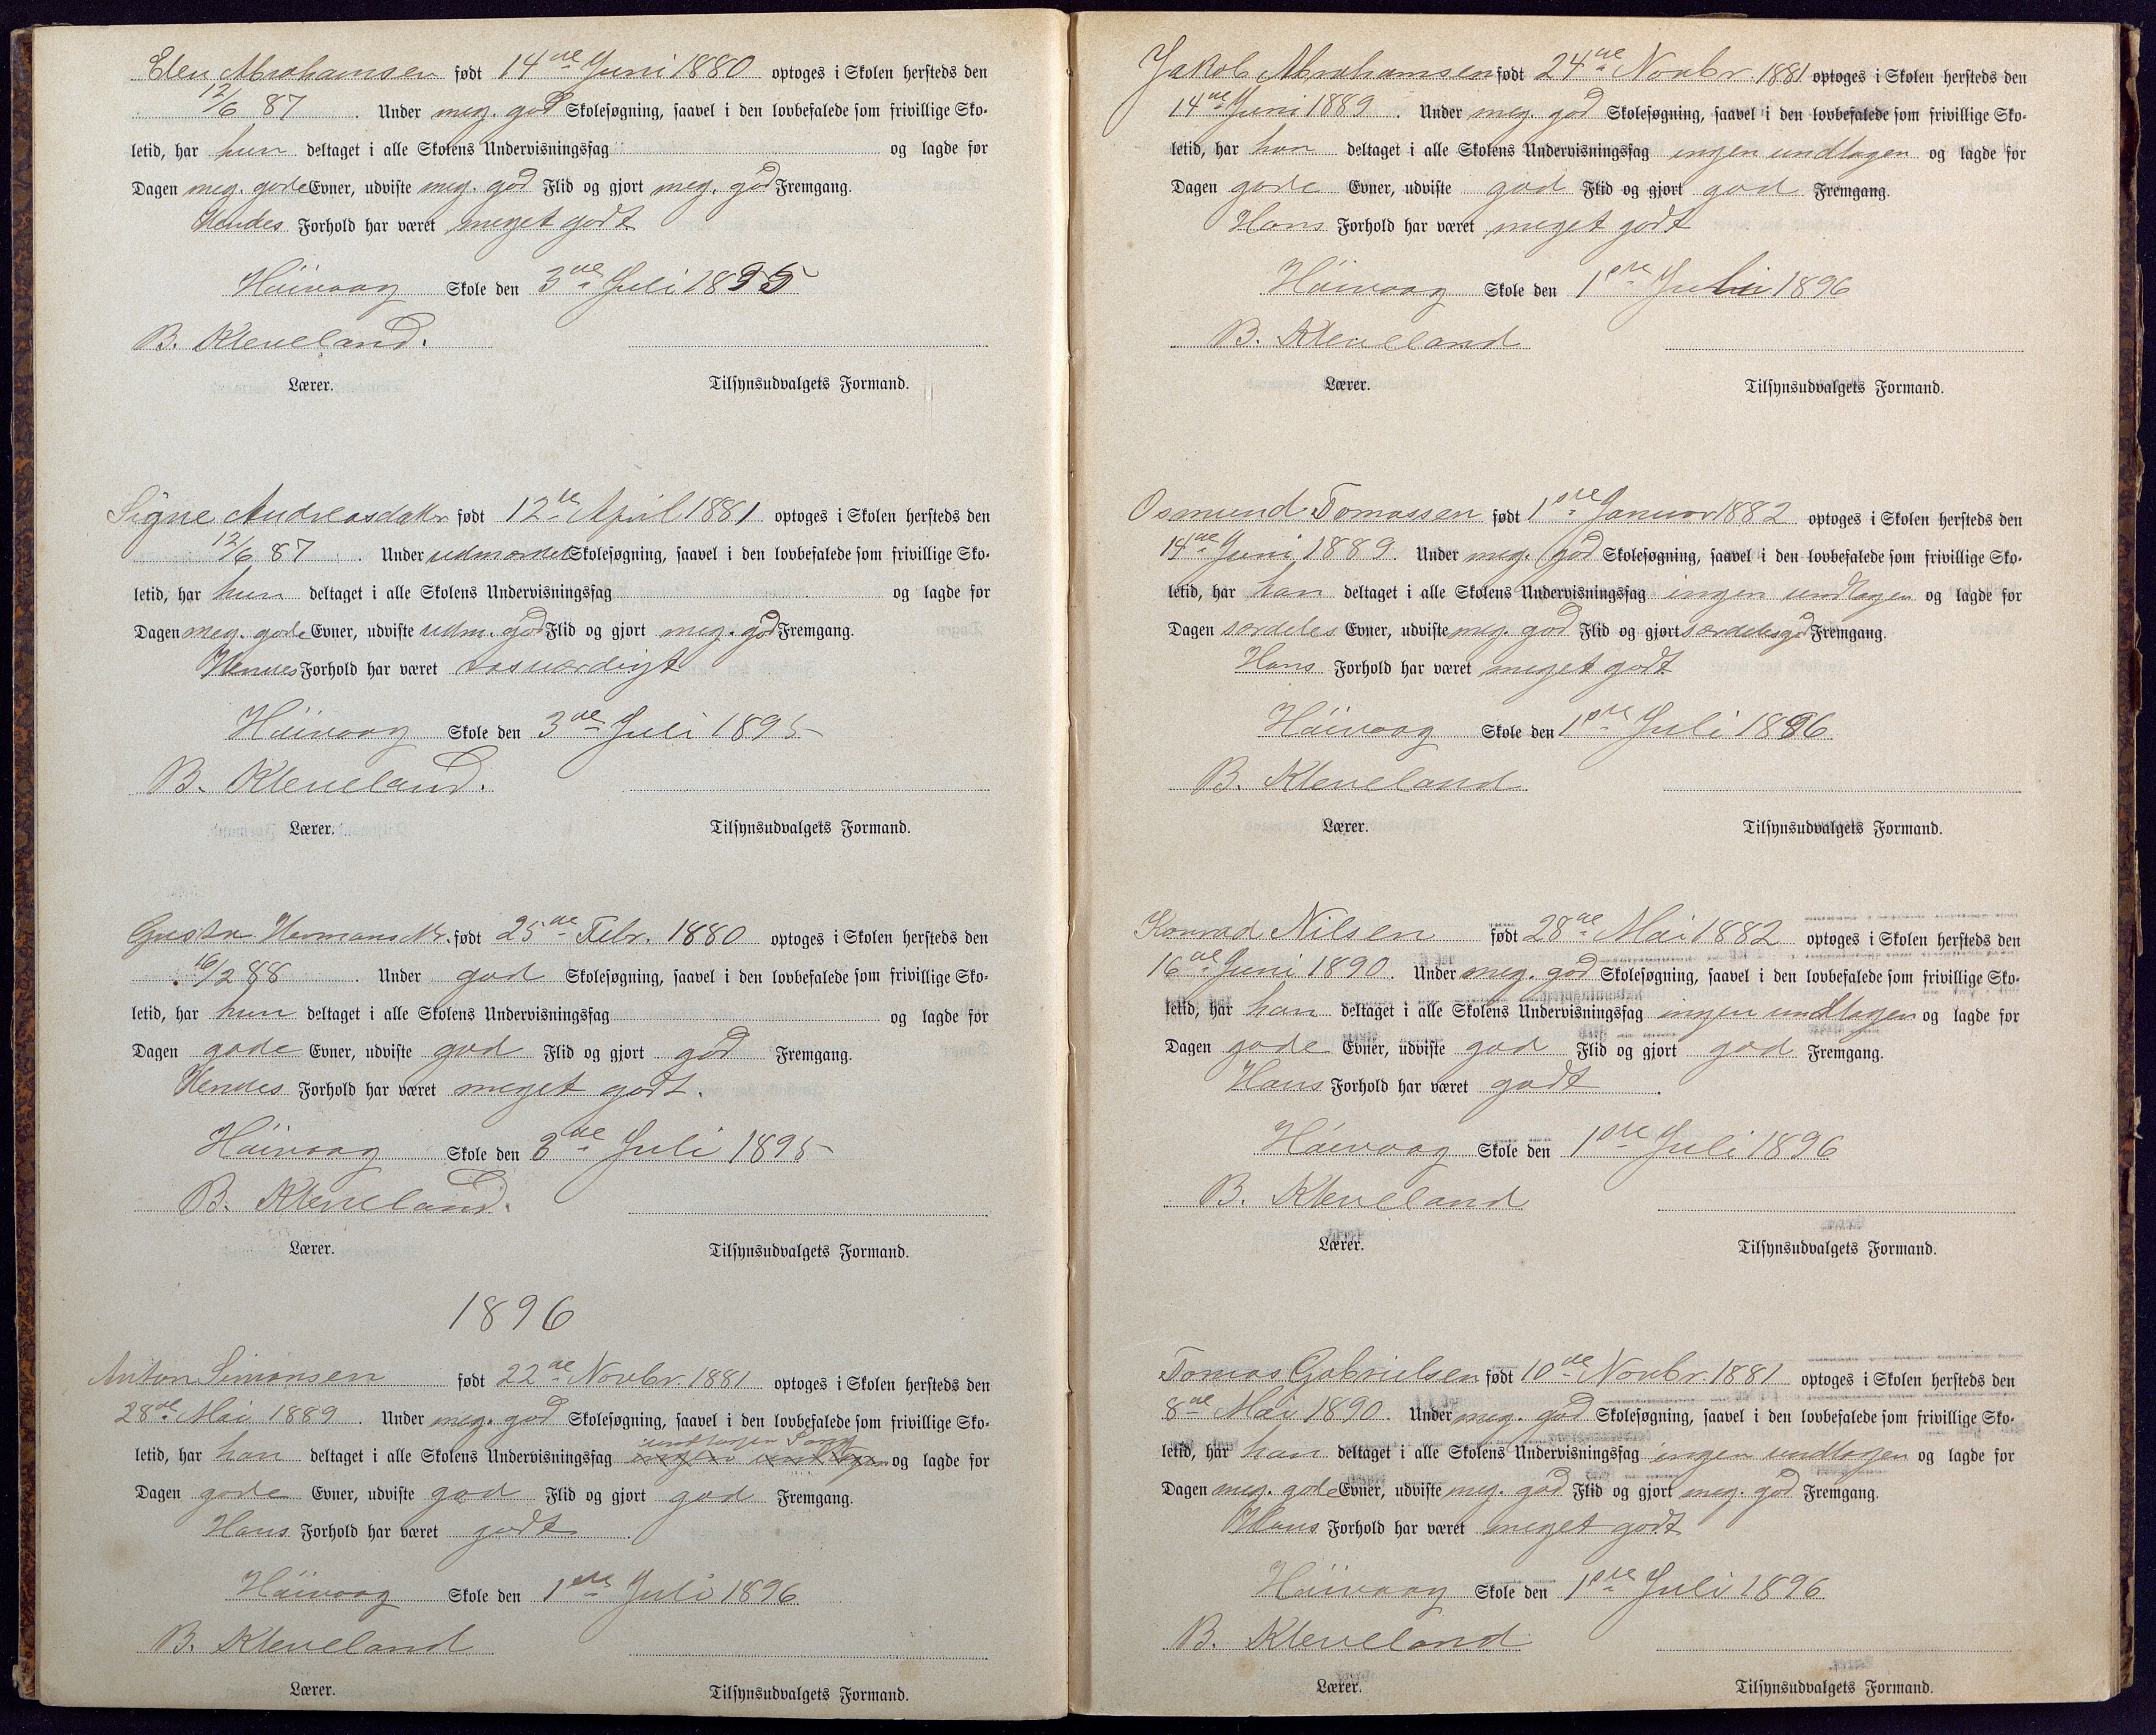 Elen Abrahamsen født 14de Juni 1880 optoges i Skolen hersteds den
12/6 87. Under meg. god Skolesøgning, saavel i den lovbefalede som frivillige Sko-
letid, har hun deltaget i alle Skolens Undervisningsfag og lagde for
Dagen meg. gode Evner, udviste meg. god Flid og gjort meg. god Fremgang.
Hendes Forhold har været meget godt
Höivaag Skole den 3de Juli 1895
B. Kleveland.
Lærer. Tilsynsudvalgets Formand.
Signe Andreasdatter født 12te April 1881 optoges i Skolen hersteds den
12/6 87. Under udmærket Skolesøgning, saavel i den lovbefalede som frivillige Sko-
letid, har hun deltaget i alle Skolens Undervisningsfag og lagde for
Dagen meg. gode Evner, udviste udm. god Flid og gjort meg. god Fremgang.
Hendes Forhold har været rosværdigt
Höivaag Skole den 3de Juli 1895
B. Kleveland.
Lærer. Tilsynsudvalgets Formand.
født 25de Febr. 1880 optoges i Skolen hersteds den
16/2 88. Under god Skolesøgning, saavel i den lovbefalede som frivillige Sko-
letid, har hun deltaget i alle Skolens Undervisningsfag og lagde for
Dagen gode Evner, udviste god Flid og gjort god Fremgang.
Hendes Forhold har været meget godt.
Höivaag Skole den 3de Juli 1895
B. Kleveland.
Lærer. Tilsynsudvalgets Formand.
1896
Anton Simonsen født 22de Novbr. 1881 optoges i Skolen hersteds den
28de Mai 1889. Under meg. god Skolesøgning, saavel i den lovbefalede som frivillige Sko-
undtagen Sang
letid, har han deltaget i alle Skolens Undervisningsfag ingen undtagen og lagde for
Dagen gode Evner, udviste god Flid og gjort god Fremgang.
Hans Forhold har været godt
Höivaag Skole den 1ste Juli 1896
B. Kleveland
Lærer. Tilsynsudvalgets Formand.
Jakob Abrahamsen født 24de Novbr. 1881 optoges i Skolen hersteds den
14de Juni 1889. Under meg. god Skolesøgning, saavel i den lovbefalede som frivillige Sko-
letid, har han deltaget i alle Skolens Undervisningsfag ingen undtagen og lagde for
Dagen gode Evner, udviste god Flid og gjort god Fremgang.
Hans Forhold har været meget godt
Höivaag Skole den 1ste Juli 1896
B. Kleveland
Lærer. Tilsynsudvalgets Formand.
Osmund Tomassen født 1ste Januar 1882 optoges i Skolen hersteds den
14de Juni 1889. Under meg. god Skolesøgning, saavel i den lovbefalede som frivillige Sko-
letid, har han deltaget i alle Skolens Undervisningsfag ingen undtagen og lagde for
Dagen særdeles Evner, udviste meg. god Flid og gjort særdeles god Fremgang.
Hans Forhold har været meget godt
Höivaag Skole den 1ste Juli 1896
B. Kleveland
Lærer. Tilsynsudvalgets Formand.
Konrad Nilsen født 28de Mai 1882 optoges i Skolen hersteds den
16de Juni 1890. Under meg. god Skolesøgning, saavel i den lovbefalede som frivillige Sko-
letid, har han deltaget i alle Skolens Undervisningsfag ingen undtagen og lagde for
Dagen gode Evner, udviste god Flid og gjort god Fremgang.
Hans Forhold har været godt
Höivaag Skole den 1ste Juli 1896
B. Kleveland
Lærer. Tilsynsudvalgets Formand.
Tomas Gabrielsen født 10de Novbr. 1881 optoges i Skolen hersteds den
8de Mai 1890. Under meg. god Skolesøgning, saavel i den lovbefalede som frivillige Sko-
letid, har han deltaget i alle Skolens Undervisningsfag ingen undtagen og lagde for
Dagen meg. gode Evner, udviste meg. god Flid og gjort meg. god Fremgang.
Hans Forhold har været meget godt
Höivaag Skole den 1ste Juli 1896
B. Kleveland
Lærer. Tilsynsudvalgets Formand.